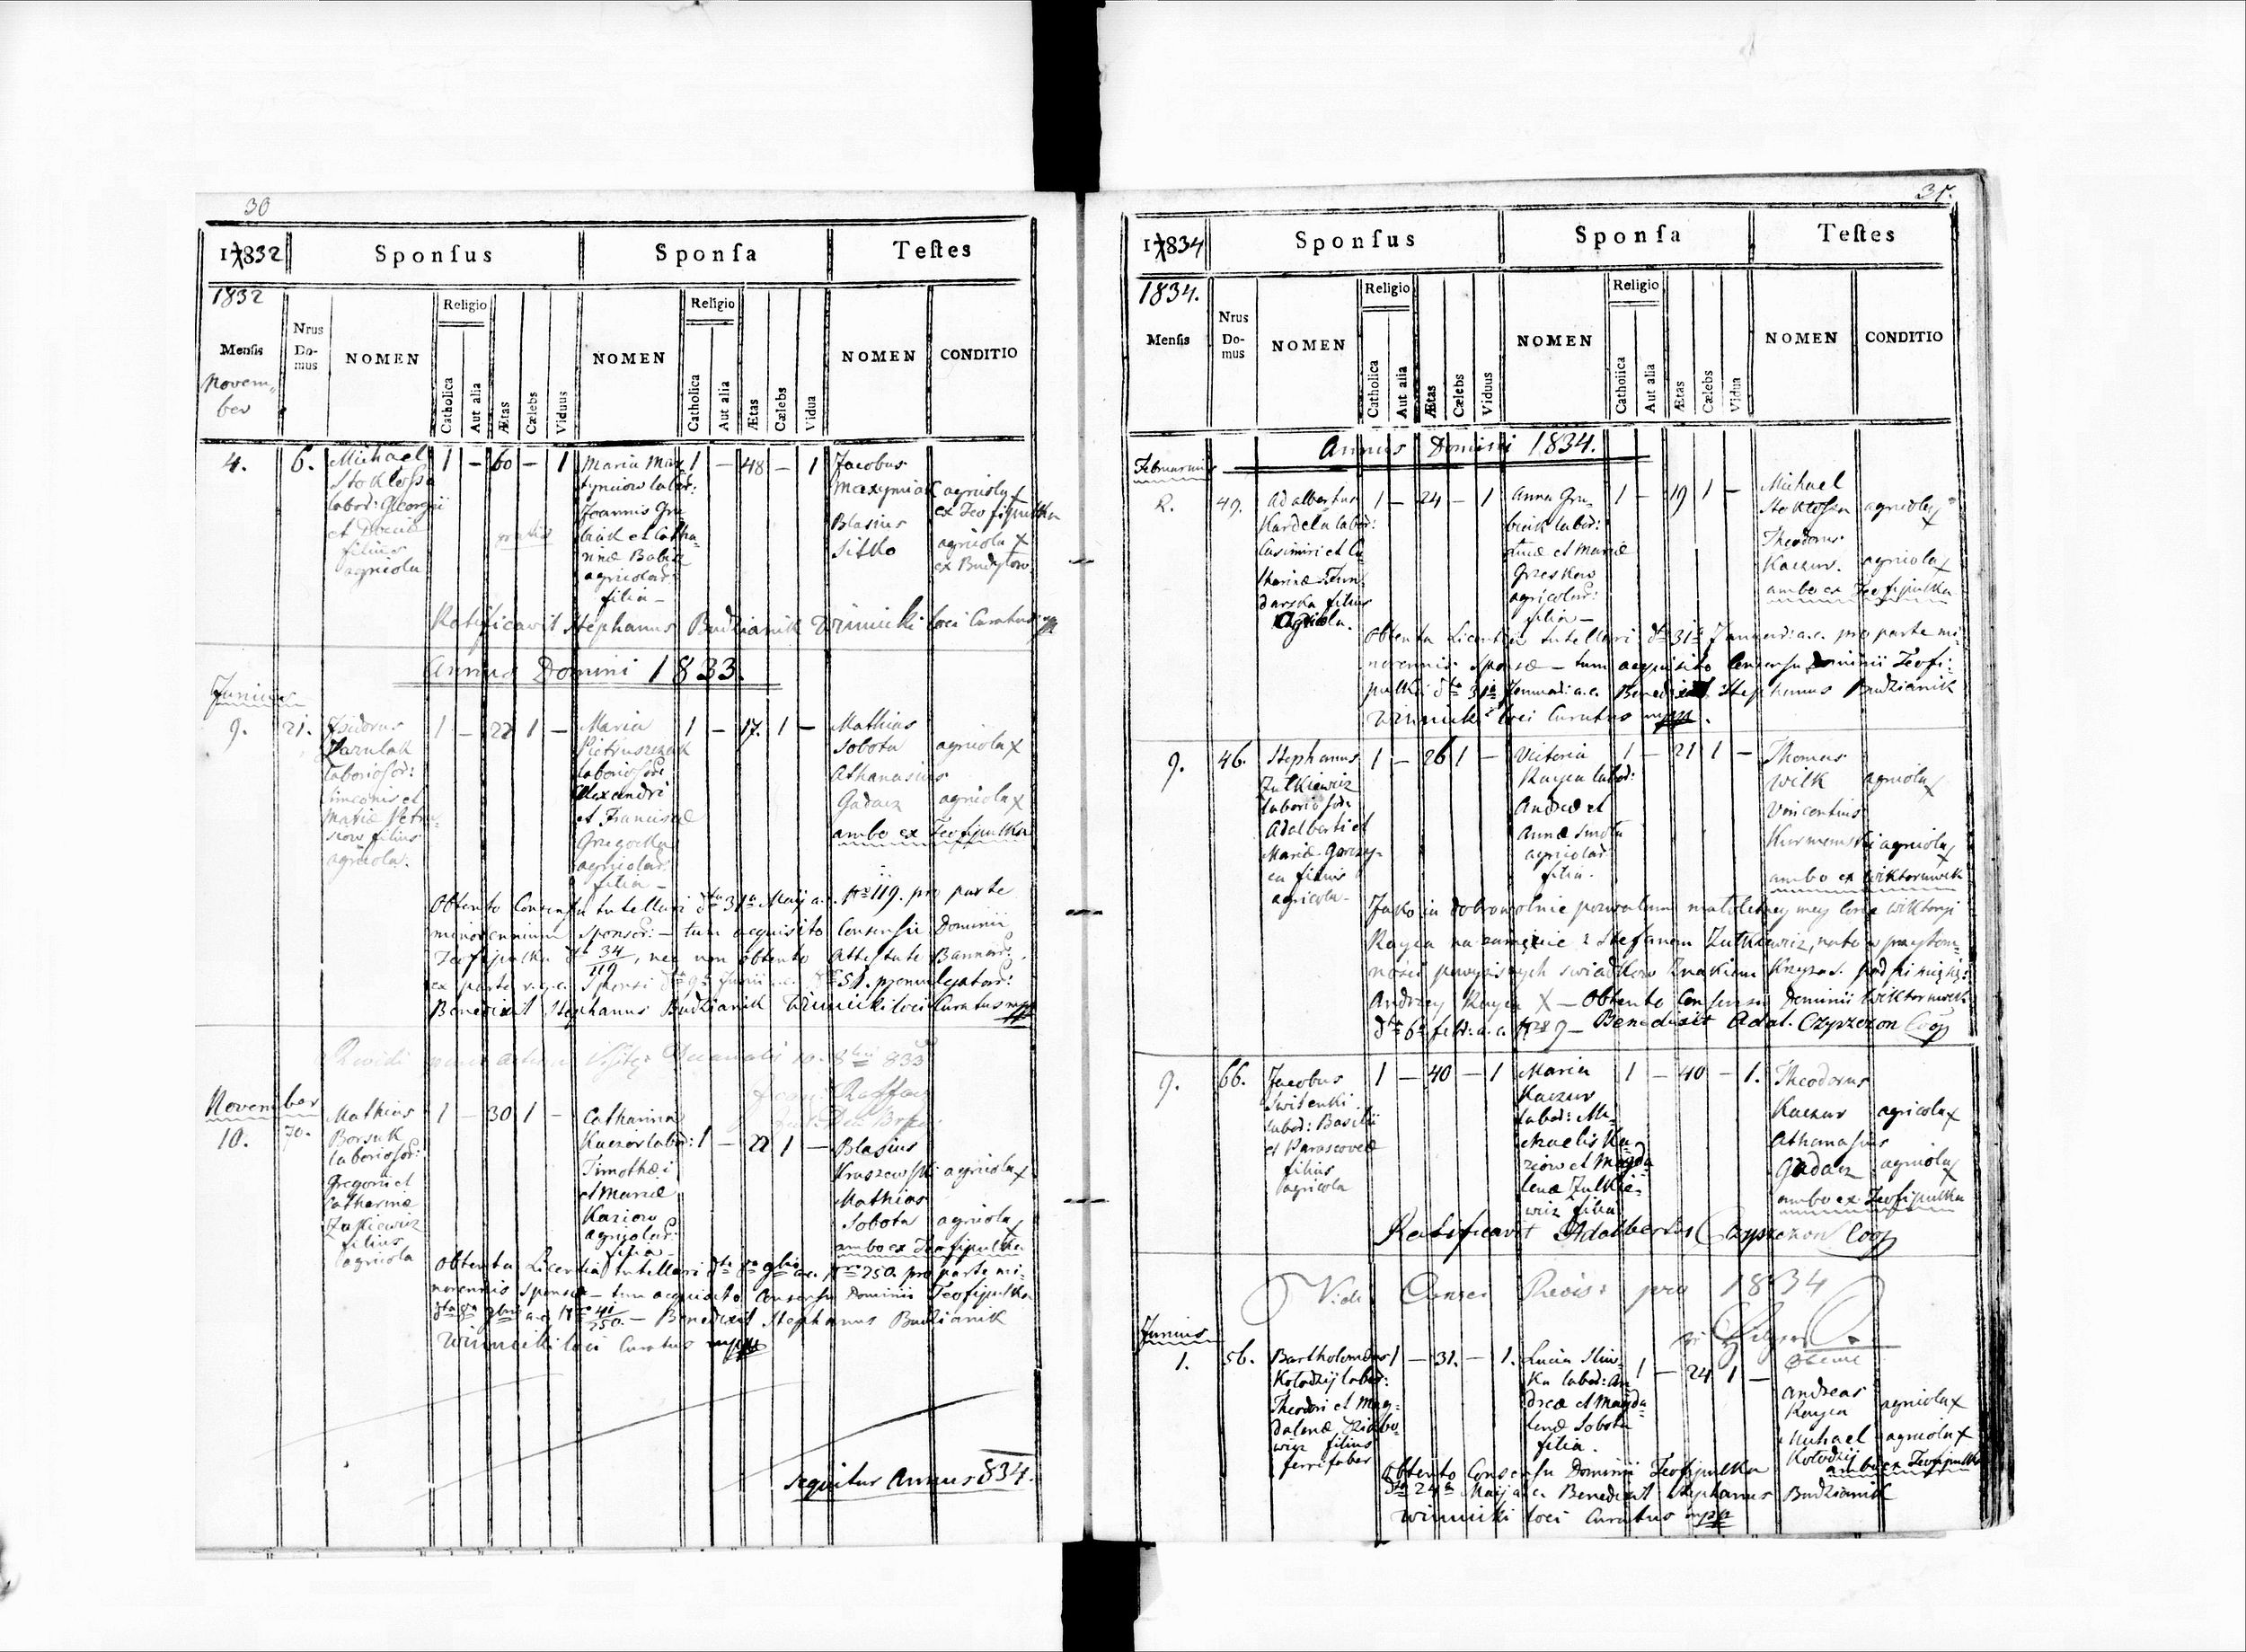 30
17832 Sponsus Sponsa Testes
1832
Mensis
Novem-
ber
Nrus Domus
NOMEN
Religio
Catholica
Aut alia
Ætas
Cælebs
Viduus
NOMEN
Religio
Catholica
Aut alia
Ætas
Cælebs
Vidua
NOMEN
CONDITIO
4. 6.
Michael
Stoklossa
labor: Georgii
et
filius
agricola
1 – 60 – 1
gratis
Maria Max
tyniow labor:
Joannis Gru
biak et Catha-
rinæ Babi
agricolar:
filia –
1 – 48 – 1
Jacobus
Maxymiak agricola x
ex Teofipulka
Blasius
Sitko agricola x
ex Budylow
Ratificavit Stephanus Budzianik Winnicki loci Curatus
Annus Domini 1833.
Junius
9. 21.
Isidorus
Jarulak
laboriosor:
Simeonis et
Mariæ Petru-
filius
agricola.
1 – 22 1 –
Maria
Pietruszczak
laboriosor:
Alexandri
et Franciscæ
Gregorka
agricolar:
filia –
1 – 17. 1 –
Mathias
Sobota agricola x
Athanasius
Gadacz agricola x
ambo ex Teofipulka
Obtento Consensu tutellari dto 31a Maij a.c. Nro 119. pro parte
minorennium Sponsor: – tum acquisito Consensu Dominii
Teofipulka dto 34/119, nec non obtento Attestate Bannor:
ex parte r.g.c. Sponsi dto 9a Junii a.c. 51. promulgator:
Benedixit Stephanus Budzianik Winnicki loci Curatus mpp
Revidi 833
November
10. 70.
Mathias
Borsuk
laboriosor:
Gregorii et
Catharinæ
Zutkiewicz
filius
agricola
1 – 30 1 –
Catharina
Kaczor labor:
Timothæi
et Mariæ
Kaziow
agricolar:
filia –
1 – 22 1 –
Blasius
Kraszewski agricola x
Mathias
Sobota agricola x
ambo ex Teofipulka
Obtenta Licentia tutellari dto 8a 9bris a.c. Nro 250. pro parte mi-
norennis Sponsæ – tum acquisito Consensu Dominii Teofipulka
dto 8a 9bris a.c. Nro 41/250. – Benedixit Stephanus Budzianik
Winnicki loci Curatus mpp
Sequitur Annus 834.
31.
17834 Sponsus Sponsa Testes
1834.
Mensis
Nrus Domus
NOMEN
Religio
Catholica
Aut alia
Ætas
Cælebs
Viduus
NOMEN
Religio
Catholica
Aut alia
Ætas
Cælebs
Vidua
NOMEN
CONDITIO
Annus Domini 1834.
Februarius
2. 49.
Adalbertus
Kardela labor:
Casimiri et Ca
tharinæ
filius
Agricola.
1 – 24 – 1
Anna Gru-
biak labor:
et Mariæ
Grzeskow
agricolar:
filia –
1 – 19 1 –
Michael
Stoklossa agricola x
Theodorus
Kaczur. agricola x
ambo ex Teofipulka
Obtenta Licentia tutellari dto 31a Januar: a.c. pro parte mi-
norennis Sponsæ – tum acquisito Consensu Dominii Teofi-
pulka dto 31a Januar: a.c. Benedixit Stephanus Budzianik
Winnicki loci Curatus mpp.
9. 46.
Stephanus
Zutkiewicz
laboriosor:
Adalberti et
Mariæ Gorczy-
ca filius
agricola –
1 – 26 1 –
Victoria
Rayca labor:
Andreæ et
Annæ Smota
agricolar:
filia.
1 – 21 1 –
Thomas
Wilk agricola x
Vincentius
agricola x
ambo ex Wiktorowek
Jako ia dobrowolnie pozwalam małoletney mey Corce Wiktoryi
Rayca na zamęście z Stefanem Zutkiewicz, na to w przytom-
ności powyższych świadków Znakiem Krzyża S. podpisuię się:
Andrzey Rayca X – Obtento Consensu Dominii Wiktorowek
dto 6a febr: a.c. Nro 9 – Benedixit Adal. Czyrzezon Coop
9. 66.
Jacobus
Switenki
labor: Basilii
et Parascoveæ
filius
agricola
1 – 40 – 1
Maria
Kaczur
labor: Mi-
chaelis Ka-
ziow et Magda
lenæ Zutkie-
wicz filia
1 – 40 – 1.
Theodorus
Kaczur agricola x
Athanasius
Gadacz agricola x
ambo ex Teofipulka
Ratificavit Adalbertus Czyrzezon Coop
Vidi Revis: pro 1834
Junius
1. 56.
Bartholomæus
Kołodzij labor:
Theodori et Mag-
dalenæ
filius
ferrifaber
1 – 31. – 1.
Lucia Sliw-
ka labor: An
dreæ et Magda-
lenæ Sobota
filia.
1 – 24 1 –
Andreas
Rayca agricola x
Michael agricola x
Kołodzij
ambo ex Teofipulka
Obtento Consensu Dominii Teofipulka
dto 24a Maij a.c. Benedixit Stephanus Budzianik
Winnicki loci Curatus mpp